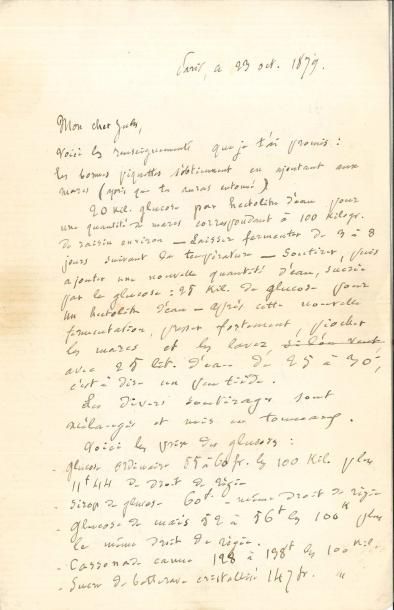 Paris, le 23 oct. 1879.
Mon cher Jules,
Voici les renseignements que je t'ai promis :
les bonnes piquettes s'obtiennent en ajoutant aux
marcs (après que tu auras entonné)
20 Kil. glucose par hectolitre d'eau pour
une quantité de marcs correspondant à 100 Kilogr.
de raisin environ — Laisser fermenter de 3 à 8
jours suivant la température — Soutirer, puis
ajouter une nouvelle quantité d'eau, sucrée
par le glucose : 25 Kil. de glucose pour
un hectolitre d'eau — après cette nouvelle
fermentation, presser fortement, piocher
les marcs et les laver si l'on veut
avec 25 lit. d'eau de 25 à 30°,
c'est à dire un peu tiède.
Les divers soutirages sont
mélangés et mis en tonneaux.
Voici les prix des glucoses :
- glucose ordinaire 55 à 60 fr. les 100 Kil. plus
11f 44 de droit de régie
- Sirop de glucose 60f. - même droit de régie
- glucose de maïs 52 à 56f les 100 K plus
le même droit de régie.
- Cassonade canne 128 à 138f les 100 Kil.
- Sucre de betterave cristallisé 147 fr. "